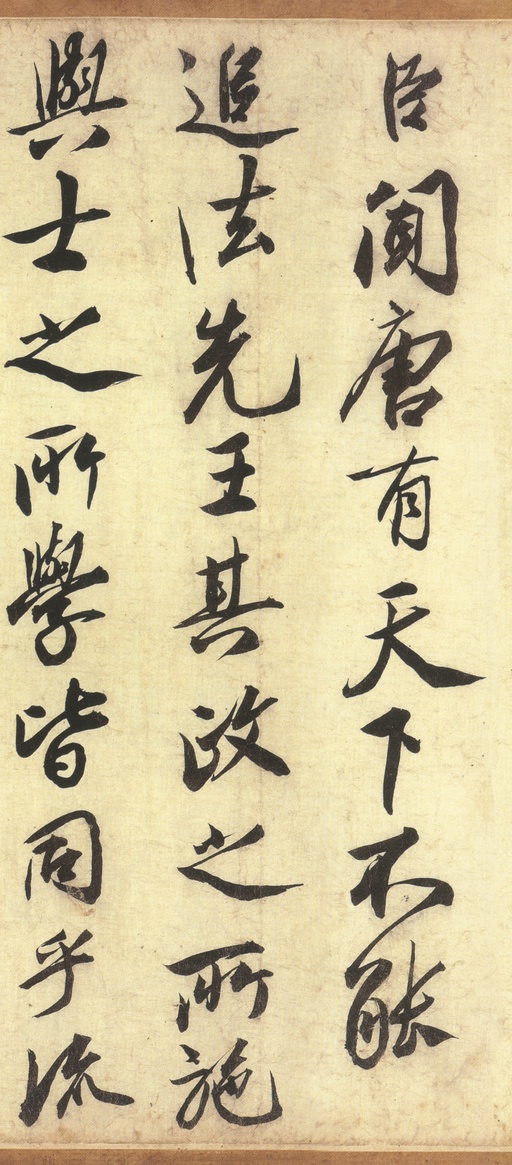 臣聞唐有天下不能
追法先王其政之所施
與士之所學皆同乎流